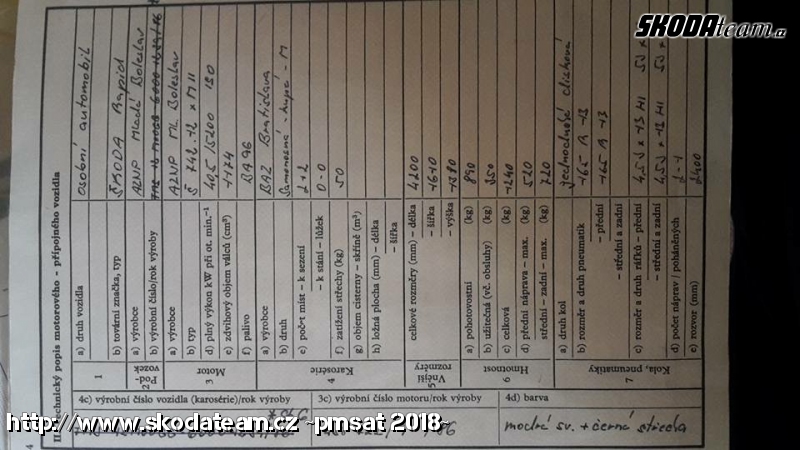 ŠKODAteam.cz
II. Technický popis motorového - přípojného vozidla
1
a) druh vozidla osobní automobil
b) tovární značka, typ ŠKODA Rapid
Pod-
vozek
2
a) výrobce AZNP Mladá Boleslav
b) výrobní číslo/rok výroby
Motor
3
a) výrobce AZNP Ml. Boleslav
b) typ Š 742.12 x M 11
d) plný výkon kW při ot. min.⁻¹ 40,5/5200
e) zdvihový objem válců (cm³) 1174
f) palivo BA 96
Karosérie
4
a) výrobce BAZ Bratislava
b) druh samonosná - kupé - M
c) počet míst – k sezení 2+2
– k stání – lůžek 0-0
f) zatížení střechy (kg) 50
g) objem cisterny – skříně (m³)
h) ložná plocha (mm) – délka
– šířka
Vnější
rozměry
5
celkové rozměry (mm) – délka 4200
– šířka 1610
– výška 1380
Hmotnost
6
a) pohotovostní (kg) 890
b) užitečná (vč. obsluhy) (kg) 350
c) celková (kg) 1240
d) přední náprava – max. (kg) 520
střední – zadní – max. (kg) 720
Kola, pneumatiky
7
a) druh kol jednoduchá disková
b) rozměr a druh pneumatik
– přední 165 R 13
– střední a zadní 165 R 13
c) rozměr a druh ráfků – přední 4,5J x 13 H1
– střední a zadní 4,5J x 13 H1
d) počet náprav / poháněných 2 - 1
e) rozvor (mm) 2400
4c) výrobní číslo vozidla (karosérie)/rok výroby
3c) výrobní číslo motoru/rok výroby
4d) barva
modrá sv. + černá střecha
http://www.skodateam.cz -pmsat 2018-